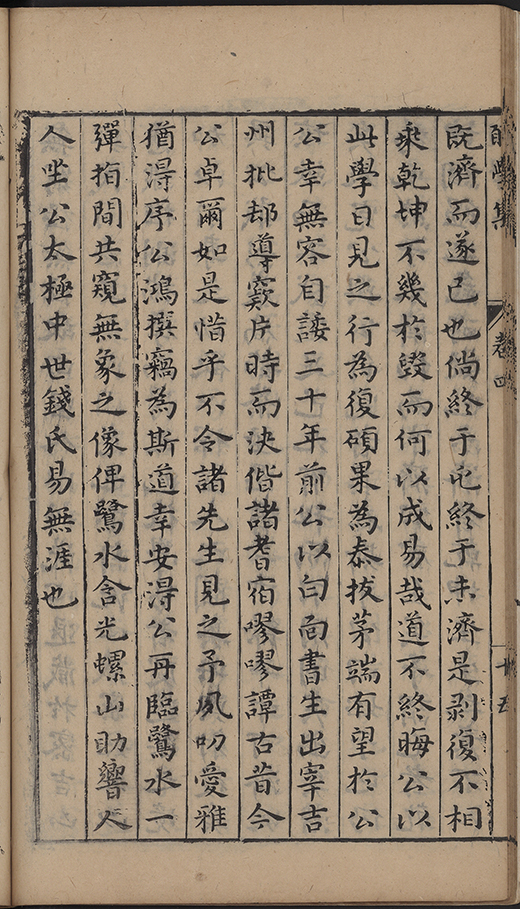 學集 卷四 十五
既濟而遂已也倘終于屯終于未濟是剥復不相
乘乾坤不幾於毀而何以成易哉道不終晦公以
此學日見之行為復碩果為泰拔茅端有望於公
公幸無容自諉三十年前公以白面書生出宰吉
州批郤導窾片時而決偕諸耆宿嘐嘐譚古昔今
公卓爾如是惜乎不令諸先生見之予夙叨愛雅
猶得序公鴻撰竊為斯道幸安得公再臨鷺水一
彈指間共窺無象之像俾鷺水含光螺山助響人
人坐公太極中世錢氏易無涯也